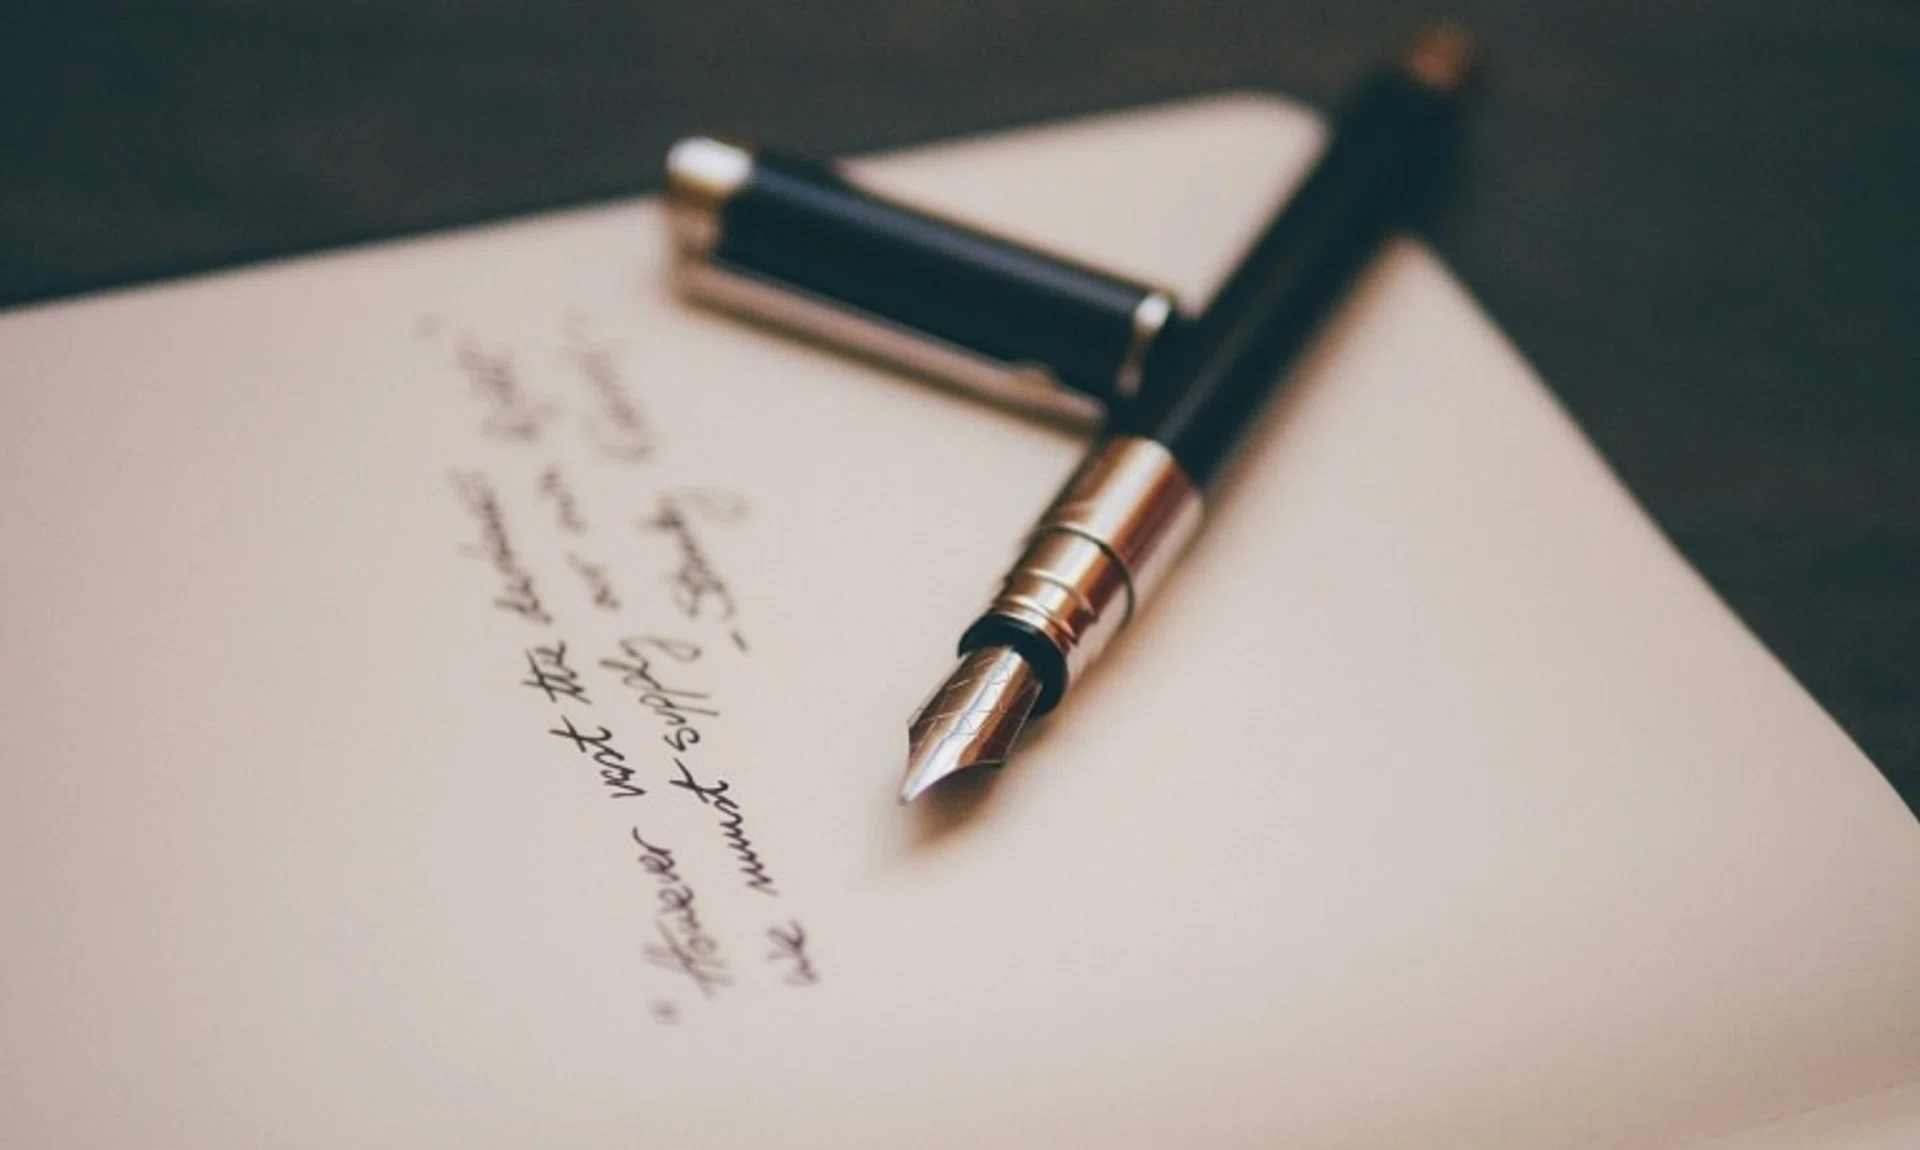 "However vast the darkness
we must supply our own
- Stanley